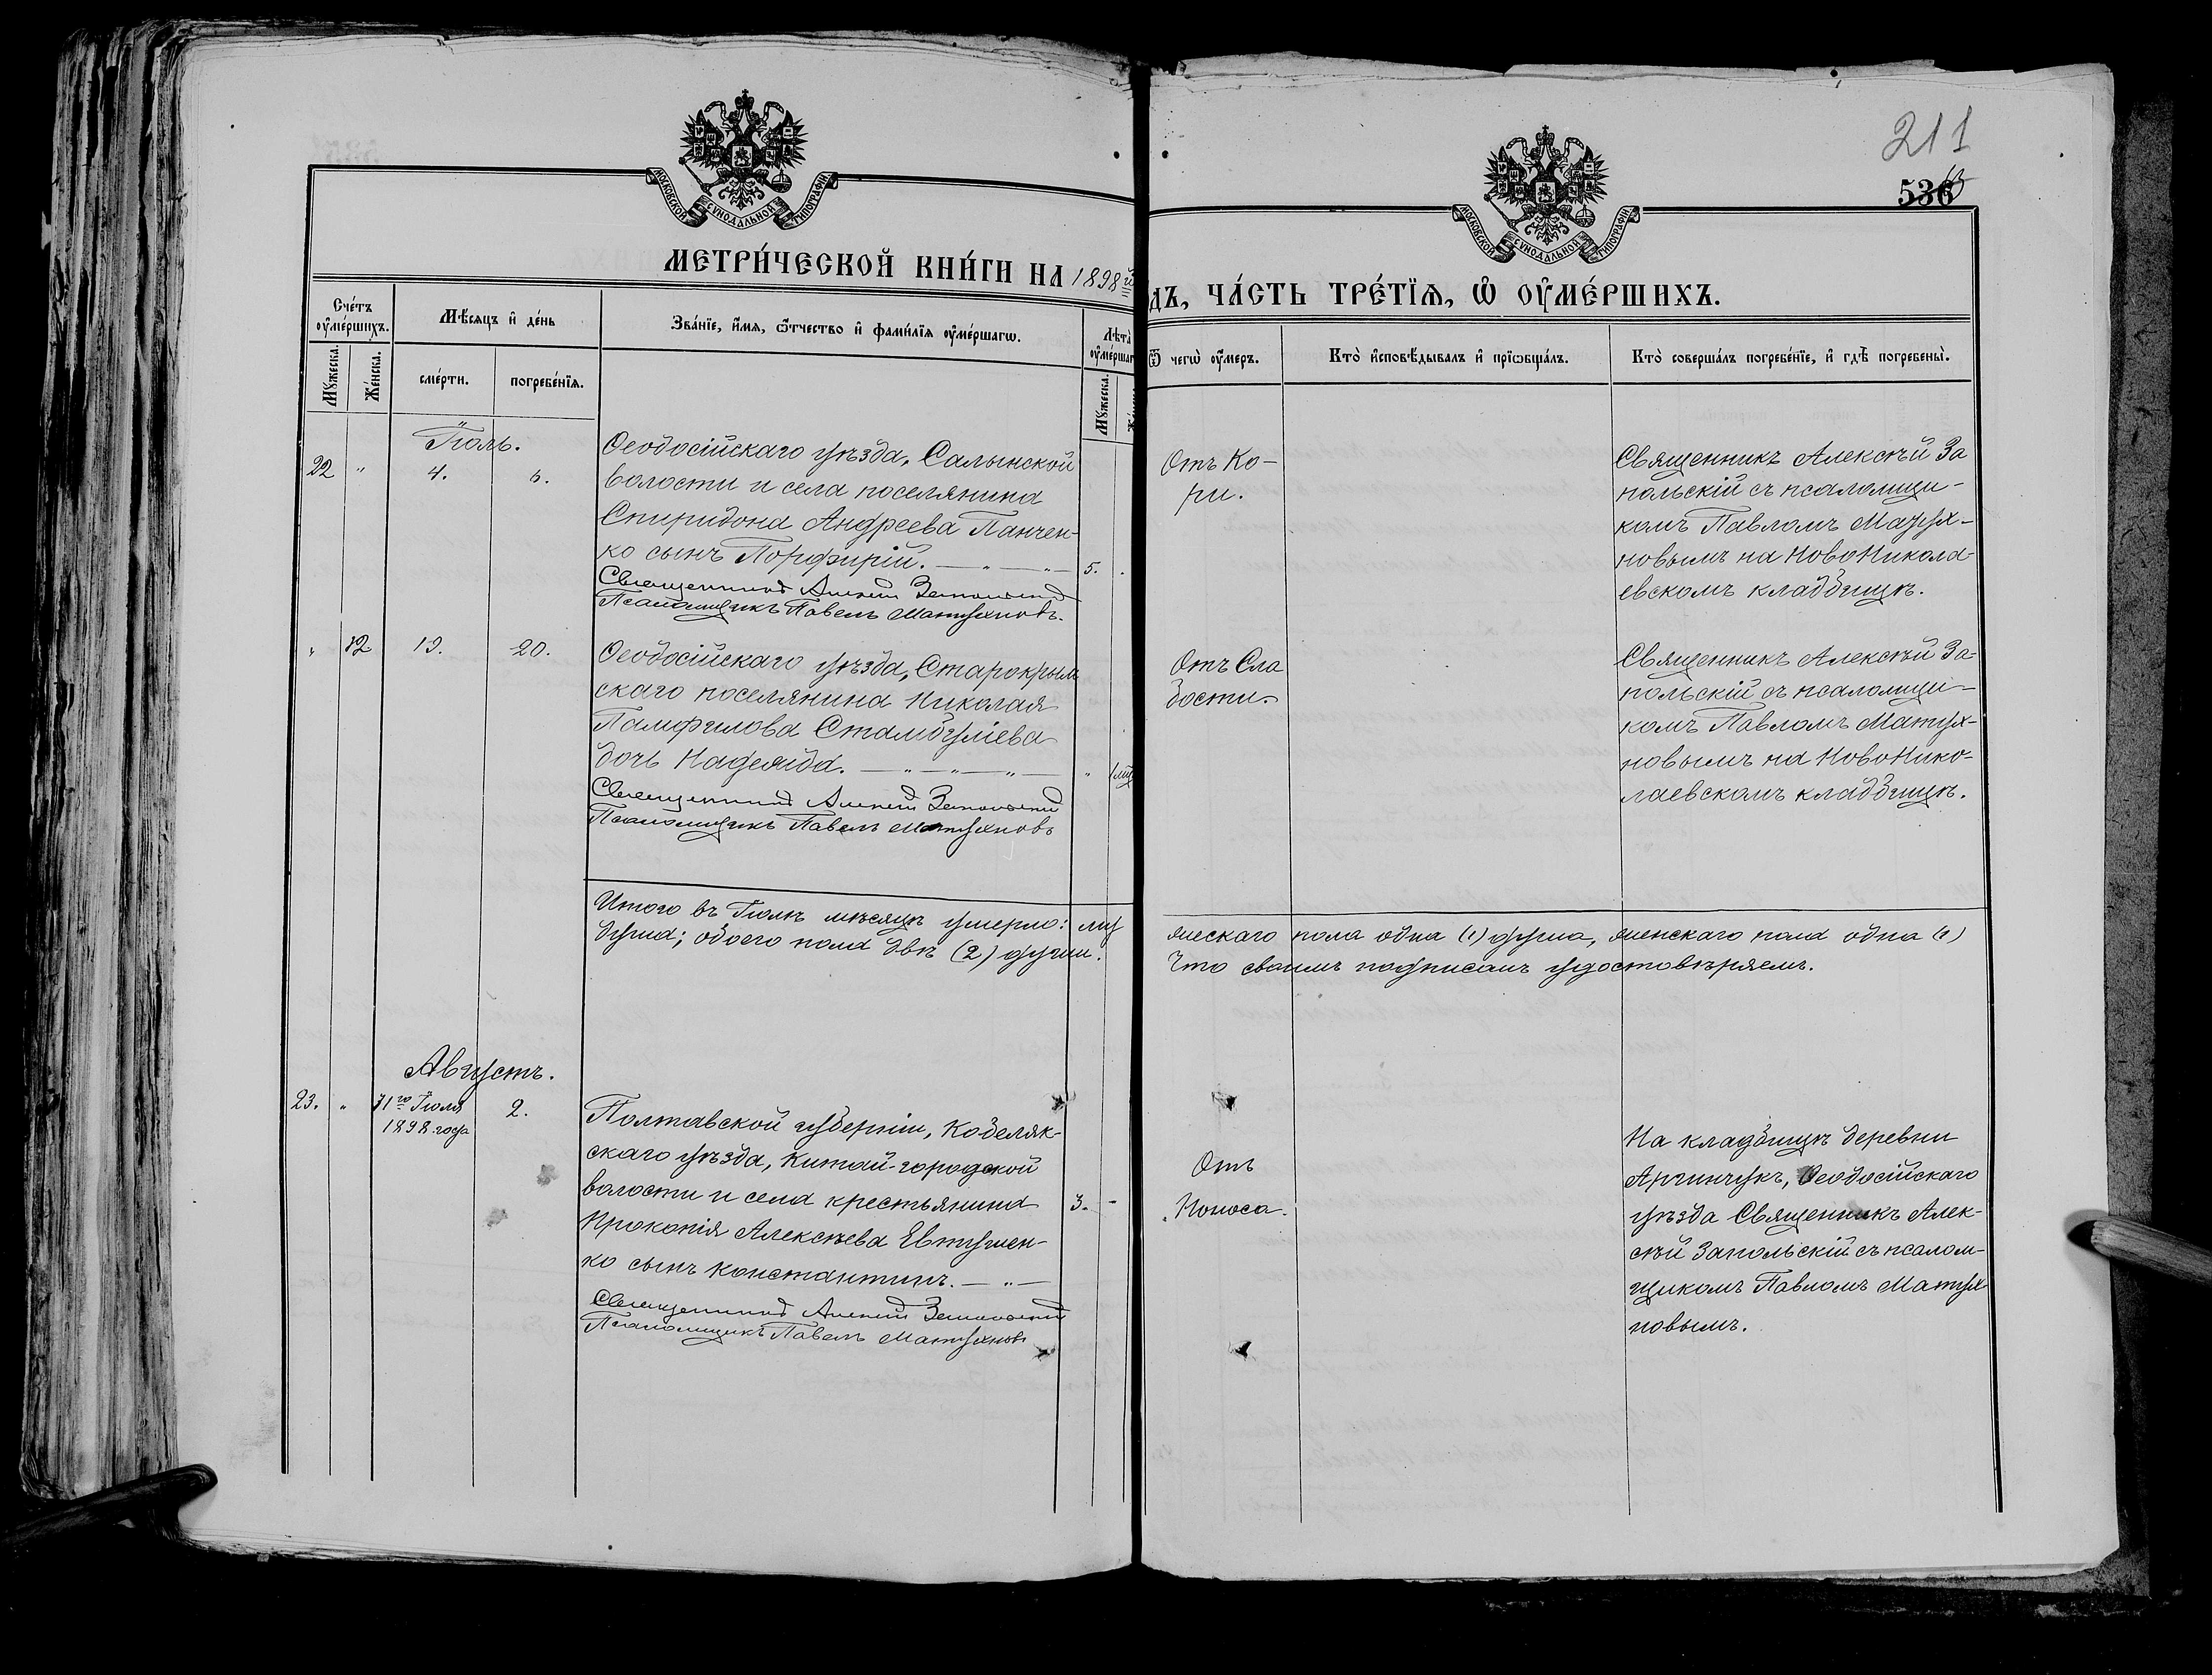 211
536
МОСКОВСКОЙ СѴНОДАЛЬНОЙ ТИПОГРАФІИ
МОСКОВСКОЙ СѴНОДАЛЬНОЙ ТИПОГРАФІИ
МЕТРИ́ЧЕСКОЙ КНИ́ГИ НА 1898 й
ДЪ, ЧА́СТЬ ТРЕ́ТЇѦ, Ѡ҆ ОУ҆МЕ́РШИХЪ.
Сче́тъ оу҆ме́ршихъ.
Мꙋ́жеска.
Же́нска.
Мѣ́сяцъ и҆ де́нь
сме́рти.
погребе́нїѧ.
Зва́нїе, и҆́мѧ, ѻ҆́тчество и҆ фами́лїѧ оу҆ме́ршагѡ.
Лѣ́та оу҆ме́ршаг
Мꙋ́жеска.
Ѿ чегѡ̀ оу҆́меръ.
Кто̀ и҆сповѣ́дывалъ и҆ прїѡбща́лъ.
Кто̀ соверша́лъ погребе́нїе, и҆ гдѣ̀ погребены̀.
Іюль.
22 " 4. 6.
Ѳеодосійскаго уѣзда, Салынской
волости и села поселянина
Спиридона Андреева Панчен-
ко сынъ Порфирій. — " — " —
5.
Священникъ Алексѣй Запольскій
Псаломщикъ Павелъ Матухновъ.
Отъ Ко-
ри.
Священникъ Алексѣй За
польскій съ псаломщи-
комъ Павломъ Матух-
новымъ на Ново Никола-
евскомъ кладбищѣ.
" 12 19. 20.
Ѳеодосійскаго уѣзда, Старокрым
скаго поселянина Николая
Памфилова Стамбуліева
дочь Надежда. — " — " — " —
" 1 мѣ
Священникъ Алексѣй Запольскій
Псаломщикъ Павелъ Матухновъ
Отъ Сла
бости.
Священникъ Алексѣй За-
польскій съ псаломщи-
комъ Павломъ Матух-
новымъ на Ново Нико-
лаевскомъ кладбищѣ.
Итого въ Іюлѣ мѣсяцѣ умерло: му
жескаго пола одна (1) душа, женскаго пола одна (1)
душа; обоего пола двѣ (2) души.
Что своимъ подписамъ удостовѣряемъ.
Августъ.
23. " 31го Іюля 2.
1898 года
Полтавской губерніи, Кобеляк-
скаго уѣзда, Китай-городской
волости и села крестьянина
3. -
Прокопія Алексѣева Евтушен-
ко сынъ Константинъ. — " —
Священникъ Алексѣй Запольскій
Псаломщикъ Павелъ Матухновъ
Отъ
Поноса.
На кладбищѣ деревни
Аргинчукъ, Ѳеодосійскаго
уѣзда Священникъ Алек-
сѣй Запольскій съ псалом-
щикомъ Павломъ Матух
новымъ.